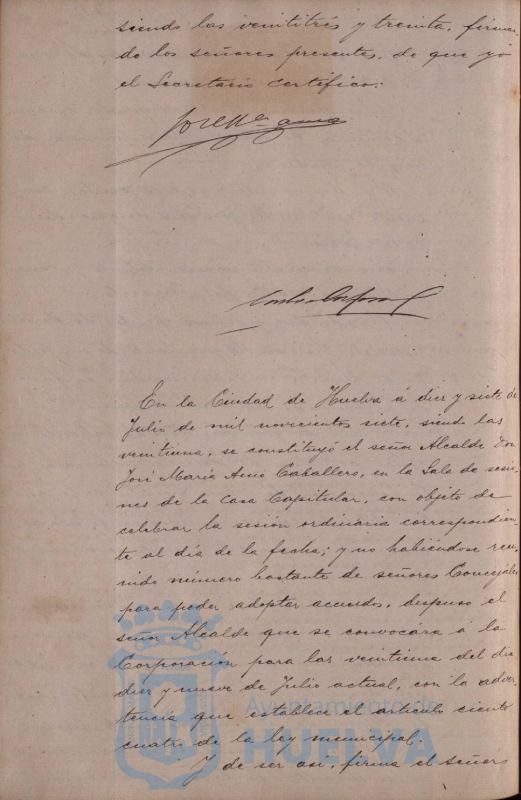 siendo las veintitrés y treinta, firman-
do los señores presentes, de que yo
el Secretario certifico.
En la Ciudad de Huelva á diez y siete de
Julio de mil novecientos siete, siendo las
veintiuna, se constituyó el señor Alcalde Don
José María Amo Caballero, en la Sala de sesio-
nes de la casa Capitular, con objeto de
celebrar la sesión ordinaria correspondien-
te al día de la fecha; y no habiéndose reu-
nido número bastante de señores Concejales
para poder adoptar acuerdos, dispuso el
señor Alcalde que se convocára á la
Corporación para las veintiuna del día
diez y nueve de Julio actual, con la adver-
tencia que establece el artículo ciento
cuatro de la ley municipal.
Y de ser así, firma el señor
Ayuntamiento de
HUELVA